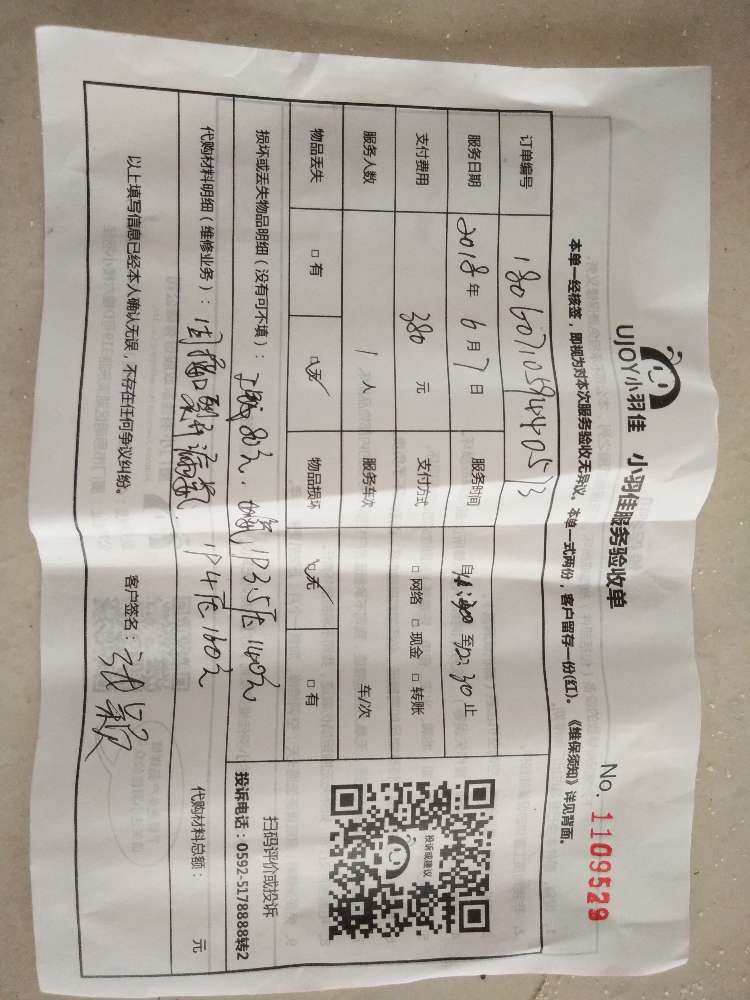 UJOY小羽佳 小羽佳服务验收单
No. 1109529
本单一经核签，即视为对本次服务验收无异议。本单一式两份，客户留存一份(红)。《维保须知》详见背面。
订单编号
服务日期 2018年 6月 7日 服务时间 自 至 止
支付费用 380 元 支付方式 □ 网络 □ 现金 □ 转账
服务人数 1 人 服务车次 车/次
物品丢失 □ 有 □ 无 物品损坏 □ 无 □ 有
损坏或丢失物品明细（没有可不填）： 80元. 1P3.5 140元
代购材料明细（维修业务）： 1P4 160元
代购材料总额： 元
以上填写信息已经本人确认无误，不存在任何争议纠纷。 客户签名：
投诉或建议
扫码评价或投诉
投诉电话：0592-5178888转2